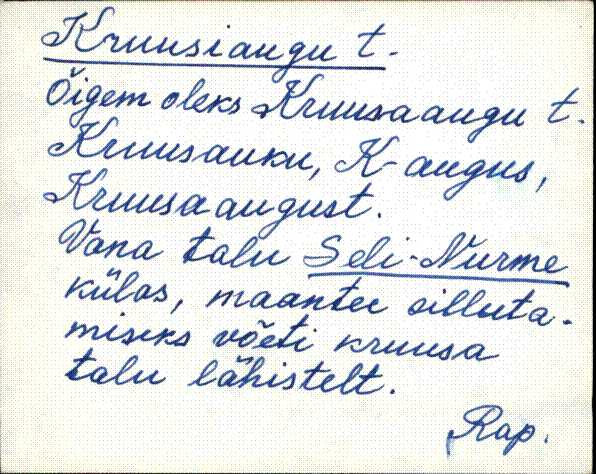 Kruusiaugu t.
Õigem oleks Kruusaaugu t.
Kruusauku, K-augus,
Kruusaaugust.
Vana talu Seli-Nurme
külas, maantee silluta-
miseks võeti kruusa
talu lähistelt.
Rap.